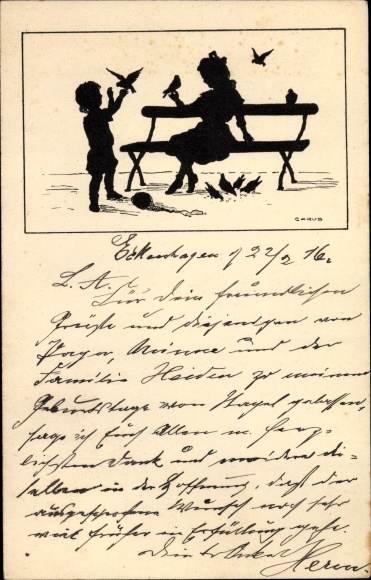 CARUS
Eckenhagen d 22/2 16.
L. A.!
Für Dein freundlichen
Grüße und diejenigen von
Papa, Mama und der
Familie Heiden zu meinem
Geburtstage von Stapel gelassen,
sage ich Euch Allen m. herz-
lichsten Dank und
selben in der Hoffnung, daß der
ausgesprochene Wunsch noch sehr
viel früher in Erfüllung gehe.
Dein Onkel